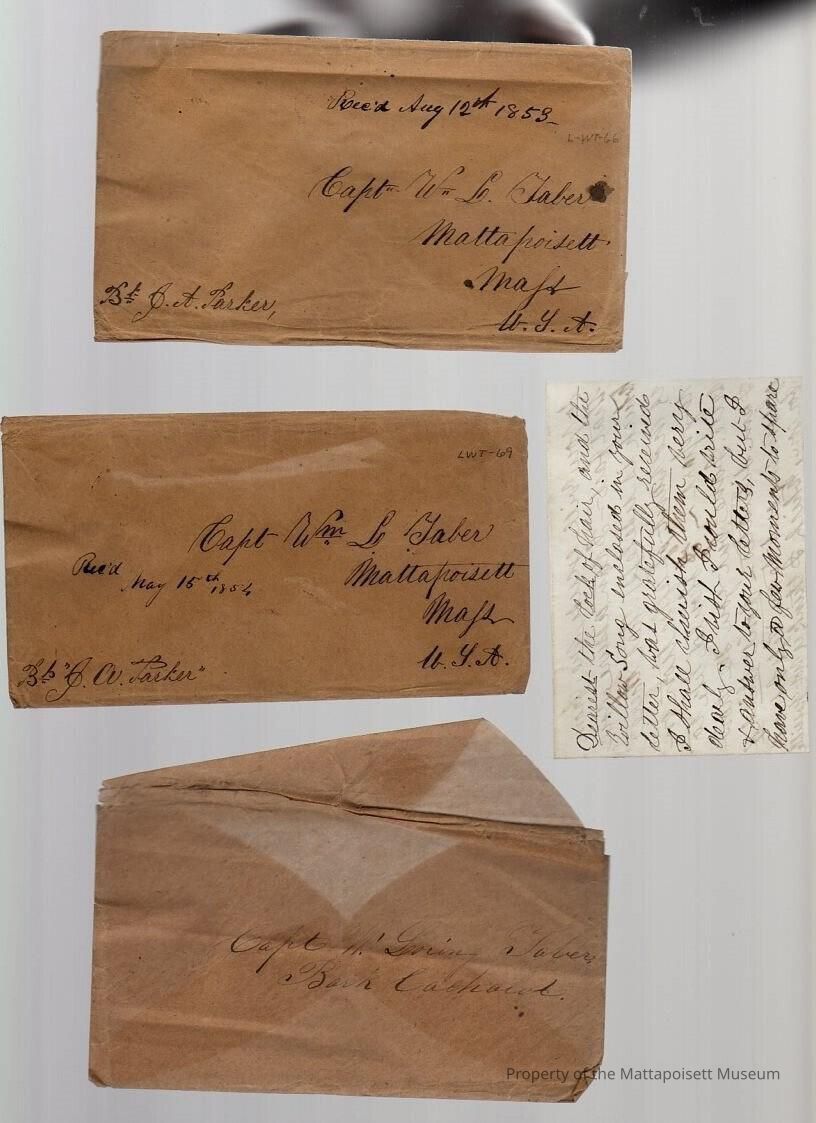 Rec'd Aug 12th 1853
L-WT-66
Capt Wm L. Taber
Mattapoisett
Mass
U. S. A.
Bk J. A. Parker,
LWT-69
Capt Wm L Taber
Rec'd
May 15th 1854
Mattapoisett
Mass
U. S. A.
Bk "J. A. Parker"
Dearest the lock of hair, and the
Willow Song enclosed in your
letter, was gratefully received
I shall cherish them very
dearly. I wish I could write
answer to your letters, but I
have only a few moments to spare
Capt W. Loring Taber,
Bark Cachalot.
Property of the Mattapoisett Museum